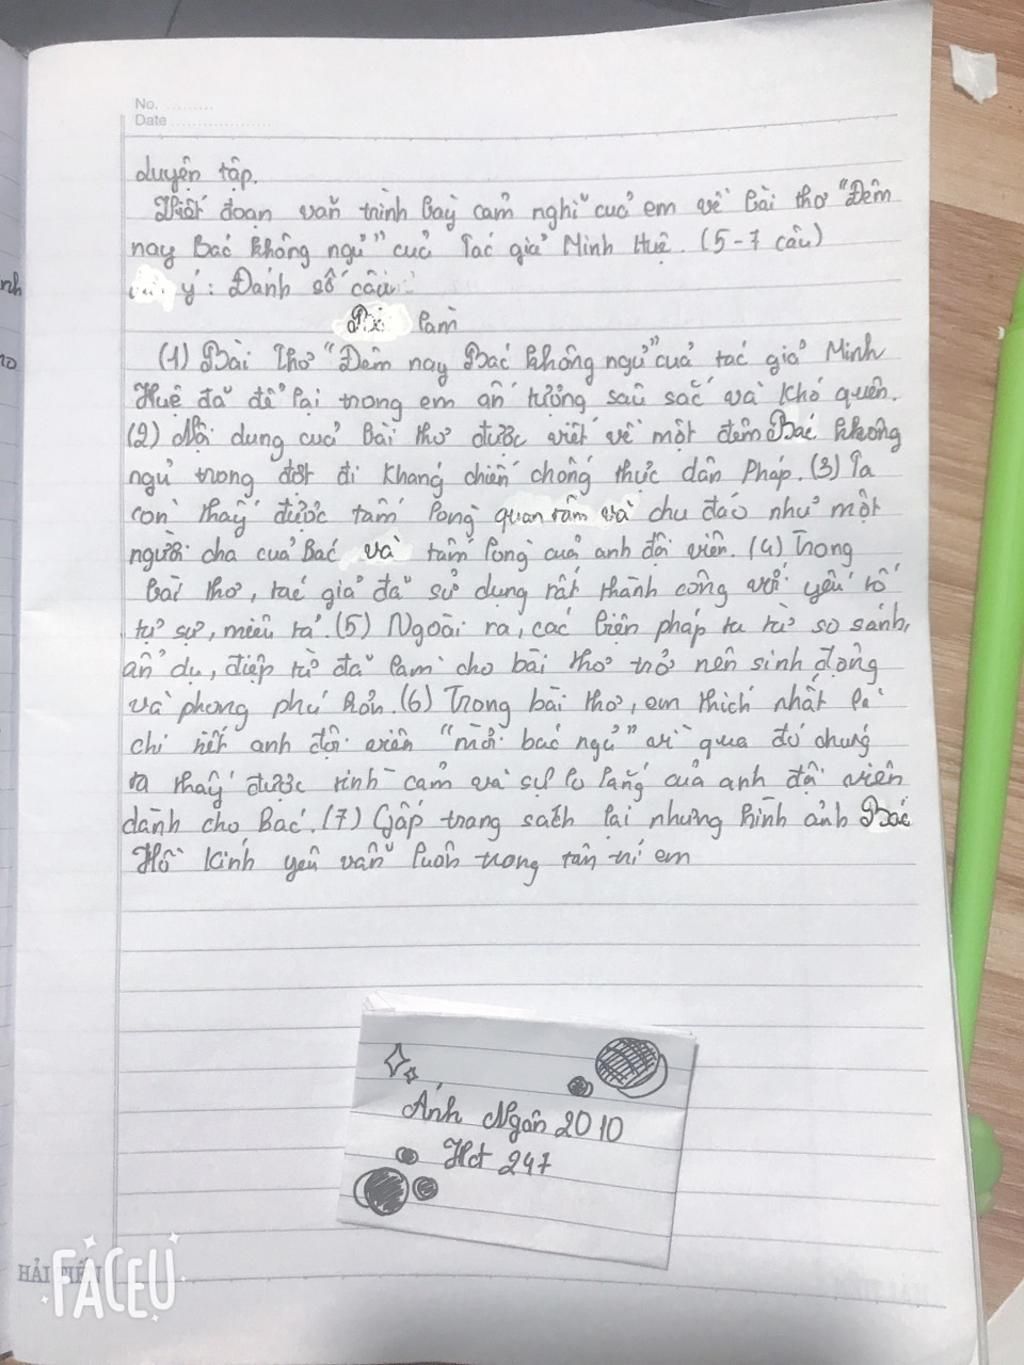 No. .........
Date ...................
Luyện tập.
Viết đoạn văn trình bày cảm nghĩ của em về bài thơ "Đêm
nay Bác không ngủ" của tác giả Minh Huệ. (5-7 câu)
ý: Đánh số câu
Bài làm
(1) Bài thơ "Đêm nay Bác không ngủ" của tác giả Minh
Huệ đã để lại trong em ấn tượng sâu sắc và khó quên.
(2) Nội dung của bài thơ được viết về một đêm Bác không
ngủ trong đợt đi kháng chiến chống thực dân Pháp. (3) Ta
còn thấy được tấm lòng quan tâm và chu đáo như một
người cha của Bác và tấm lòng của anh đội viên. (4) Trong
bài thơ, tác giả đã sử dụng rất thành công với yếu tố
tự sự, miêu tả. (5) Ngoài ra, các biện pháp tu từ so sánh,
ẩn dụ, điệp từ đã làm cho bài thơ trở nên sinh động
và phong phú hơn. (6) Trong bài thơ, em thích nhất là
chi tiết anh đội viên "mời bác ngủ" vì qua đó chúng
ta thấy được tình cảm và sự lo lắng của anh đội viên
dành cho Bác. (7) Gấp trang sách lại nhưng hình ảnh Bác
Hồ kính yêu vẫn luôn trong tâm trí em
Ánh Ngân 2010
Hct 247
HẢI TIẾN
FACEU